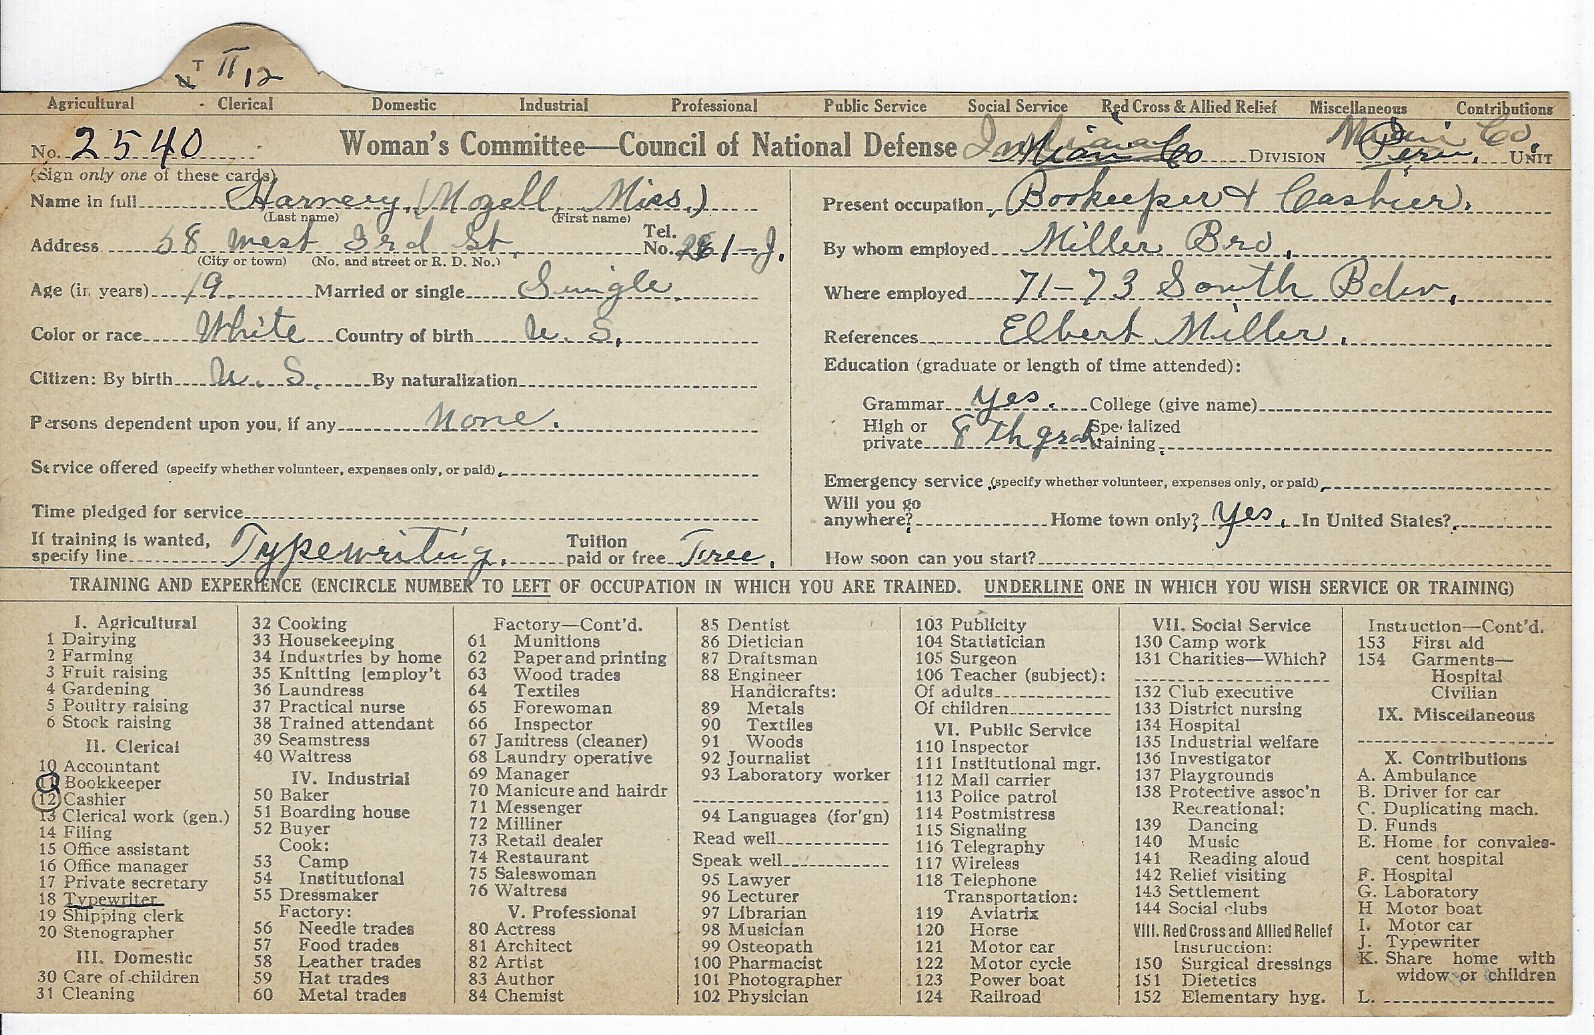 T II 12
Agricultural - Clerical Domestic Industrial Professional Public Service Social Service Red Cross & Allied Relief Miscellaneous Contributions
No. 2540 Woman's Committee—Council of National Defense Indiana DIVISION Miami Co. Peru. UNIT
(Sign only one of these cards)
Name in full Harney, (Mozell, Miss.)
(Last name) (First name)
Address 58 West 3rd St. Tel. No. 261-J.
(City or town) (No. and street or R. D. No.)
Age (in years) 19 Married or single Single.
Color or race White Country of birth U. S.
Citizen: By birth U. S. By naturalization
Persons dependent upon you, if any None.
Service offered (specify whether volunteer, expenses only, or paid)
Time pledged for service
If training is wanted, specify line Typewriting. Tuition paid or free Free.
Present occupation Bookeeper & Cashier.
By whom employed Miller Bro.
Where employed 71-73 South Bdw.
References Elbert Miller.
Education (graduate or length of time attended):
Grammar Yes. College (give name)
High or private 8th grad Specialized training
Emergency service (specify whether volunteer, expenses only, or paid)
Will you go anywhere? Home town only? Yes. In United States?
How soon can you start?
TRAINING AND EXPERIENCE (ENCIRCLE NUMBER TO LEFT OF OCCUPATION IN WHICH YOU ARE TRAINED. UNDERLINE ONE IN WHICH YOU WISH SERVICE OR TRAINING)
I. Agricultural
1 Dairying
2 Farming
3 Fruit raising
4 Gardening
5 Poultry raising
6 Stock raising
II. Clerical
10 Accountant
11 Bookkeeper
12 Cashier
13 Clerical work (gen.)
14 Filing
15 Office assistant
16 Office manager
17 Private secretary
18 Typewriter
19 Shipping clerk
20 Stenographer
III. Domestic
30 Care of children
31 Cleaning
32 Cooking
33 Housekeeping
34 Industries by home
35 Knitting [employ't
36 Laundress
37 Practical nurse
38 Trained attendant
39 Seamstress
40 Waitress
IV. Industrial
50 Baker
51 Boarding house
52 Buyer
Cook:
53 Camp
54 Institutional
55 Dressmaker
Factory:
56 Needle trades
57 Food trades
58 Leather trades
59 Hat trades
60 Metal trades
Factory—Cont'd.
61 Munitions
62 Paper and printing
63 Wood trades
64 Textiles
65 Forewoman
66 Inspector
67 Janitress (cleaner)
68 Laundry operative
69 Manager
70 Manicure and hairdr
71 Messenger
72 Milliner
73 Retail dealer
74 Restaurant
75 Saleswoman
76 Waitress
V. Professional
80 Actress
81 Architect
82 Artist
83 Author
84 Chemist
85 Dentist
86 Dietician
87 Draftsman
88 Engineer
Handicrafts:
89 Metals
90 Textiles
91 Woods
92 Journalist
93 Laboratory worker
94 Languages (for'gn)
Read well
Speak well
95 Lawyer
96 Lecturer
97 Librarian
98 Musician
99 Osteopath
100 Pharmacist
101 Photographer
102 Physician
103 Publicity
104 Statistician
105 Surgeon
106 Teacher (subject):
Of adults
Of children
VI. Public Service
110 Inspector
111 Institutional mgr.
112 Mail carrier
113 Police patrol
114 Postmistress
115 Signaling
116 Telegraphy
117 Wireless
118 Telephone
Transportation:
119 Aviatrix
120 Horse
121 Motor car
122 Motor cycle
123 Power boat
124 Railroad
VII. Social Service
130 Camp work
131 Charities—Which?
132 Club executive
133 District nursing
134 Hospital
135 Industrial welfare
136 Investigator
137 Playgrounds
138 Protective assoc'n
Recreational:
139 Dancing
140 Music
141 Reading aloud
142 Relief visiting
143 Settlement
144 Social clubs
VIII. Red Cross and Allied Relief
Instruction:
150 Surgical dressings
151 Dietetics
152 Elementary hyg.
Instruction—Cont'd.
153 First aid
154 Garments—
Hospital
Civilian
IX. Miscellaneous
X. Contributions
A. Ambulance
B. Driver for car
C. Duplicating mach.
D. Funds
E. Home for convales-
cent hospital
F. Hospital
G. Laboratory
H Motor boat
I. Motor car
J. Typewriter
K. Share home with
widow or children
L.